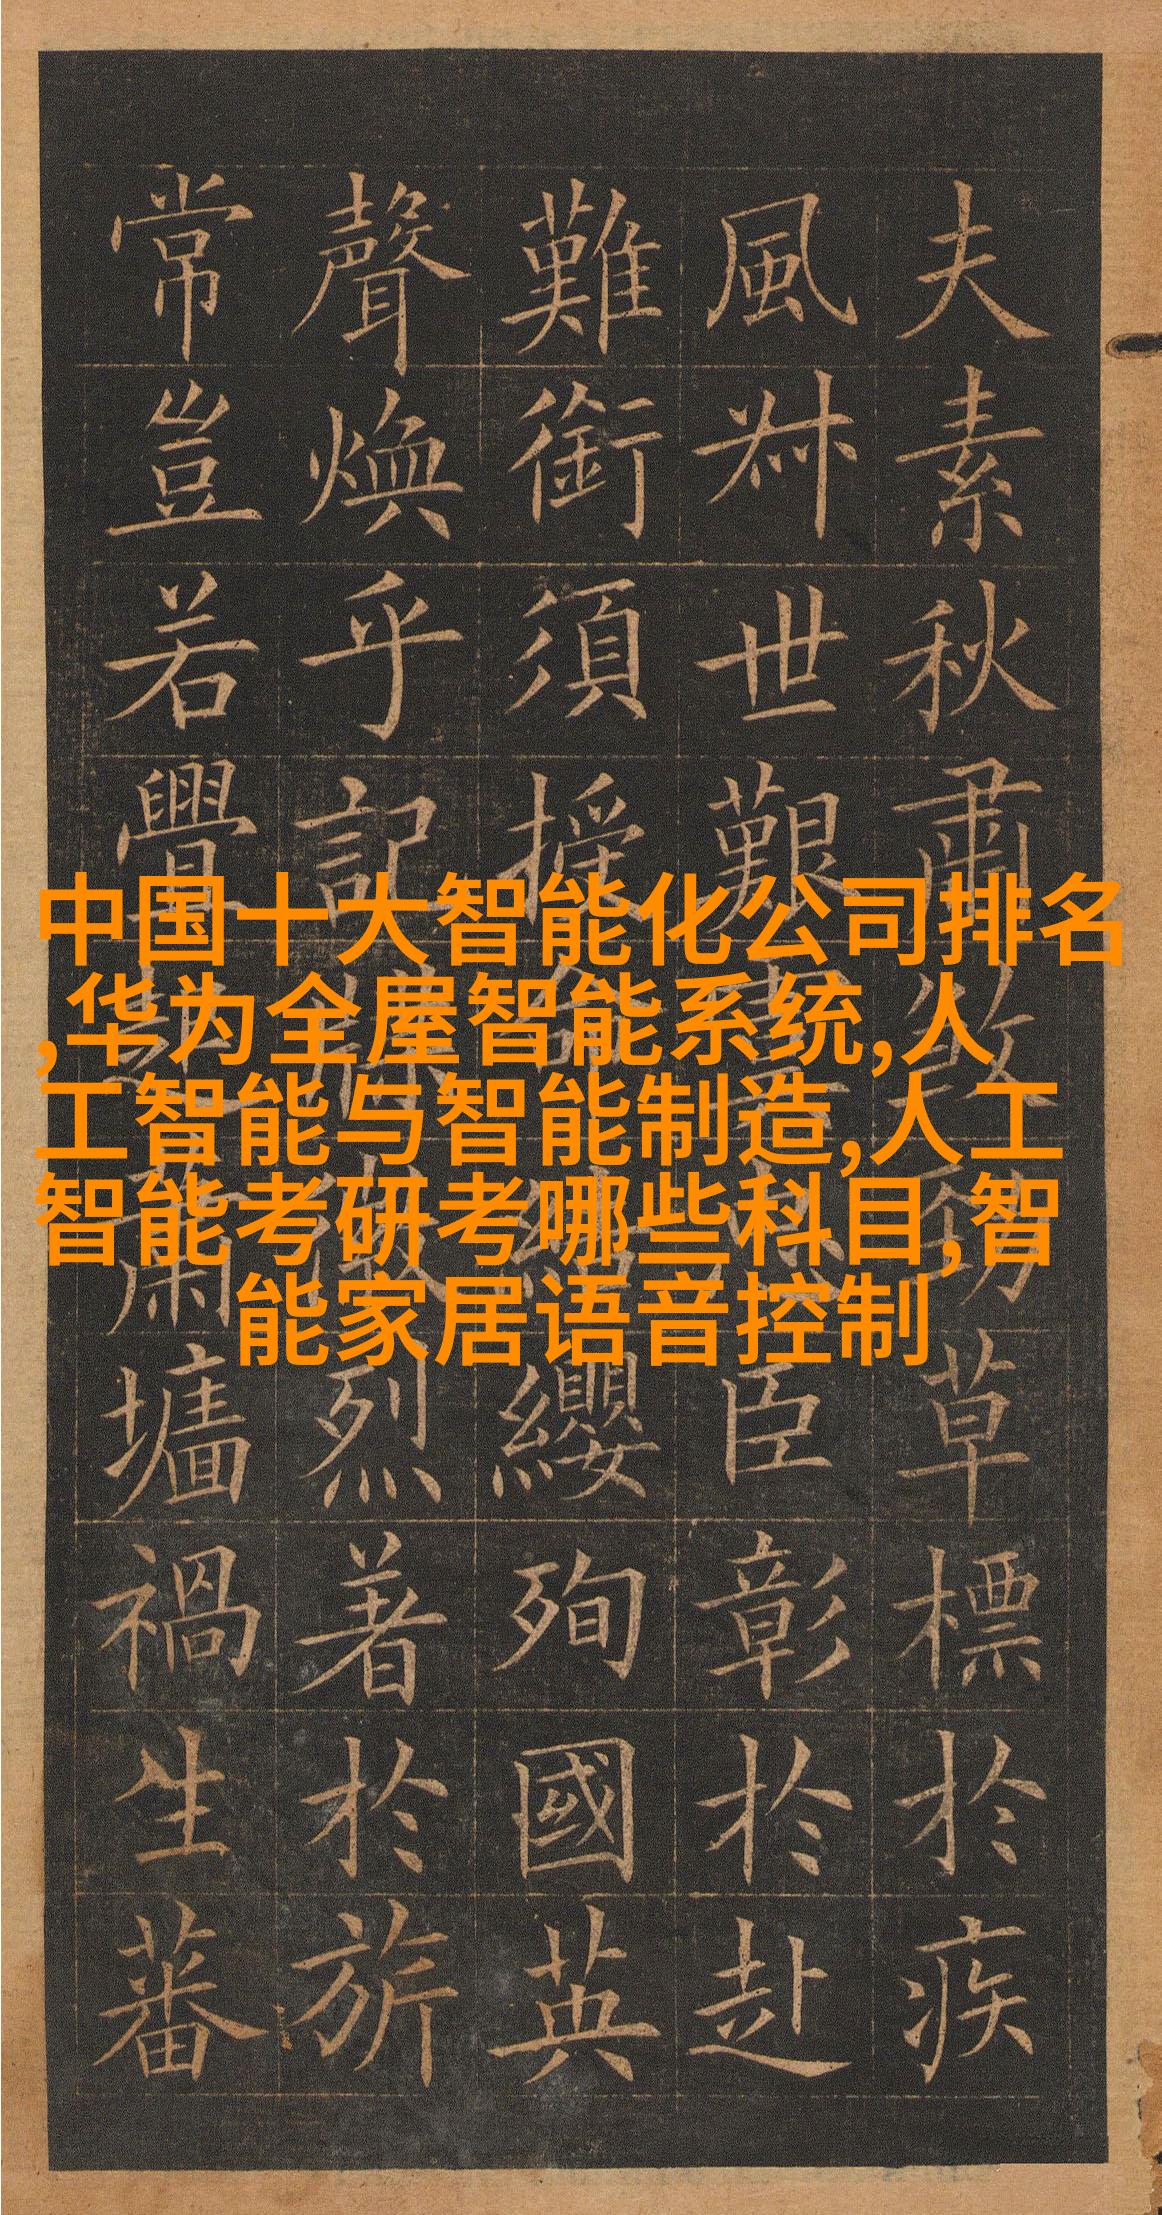 中国十大智能化公司排名
,华为全屋智能系统,人
工智能与智能制造,人工
智能考研考哪些科目,智
能家居语音控制
夫素秋肅煞勁草標於疾
風叔世艱臣彰於赴
難銜須授命結纓殉國英
聲煥乎記牒徽烈著於旂
常豈若釁起蕭墻禍生蕃